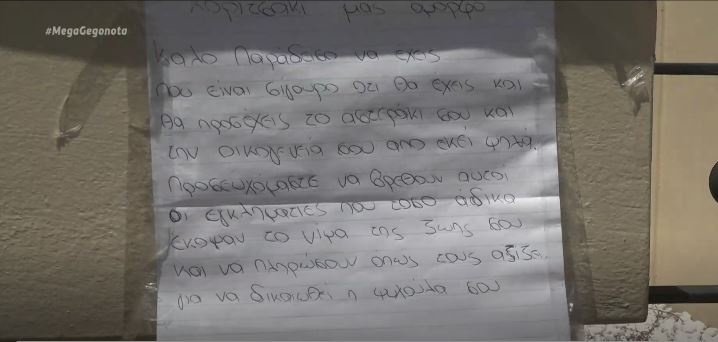 #MegaGegonota
κοριτσάκι μας όμορφο
Καλό Παράδεισο να έχεις
που είναι σίγουρο ότι θα έχεις και
θα προσέχεις το αστεράκι σου και
την οικογένεια σου από εκεί ψηλά.
Προσευχόμαστε να βρεθούν αυτοί
οι εγκληματίες που τόσο άδικα
έκοψαν το νίμα της ζωής σου
και να πληρώσουν όπως τους αξίζει
για να δικαιωθεί η ψυχούλα σου